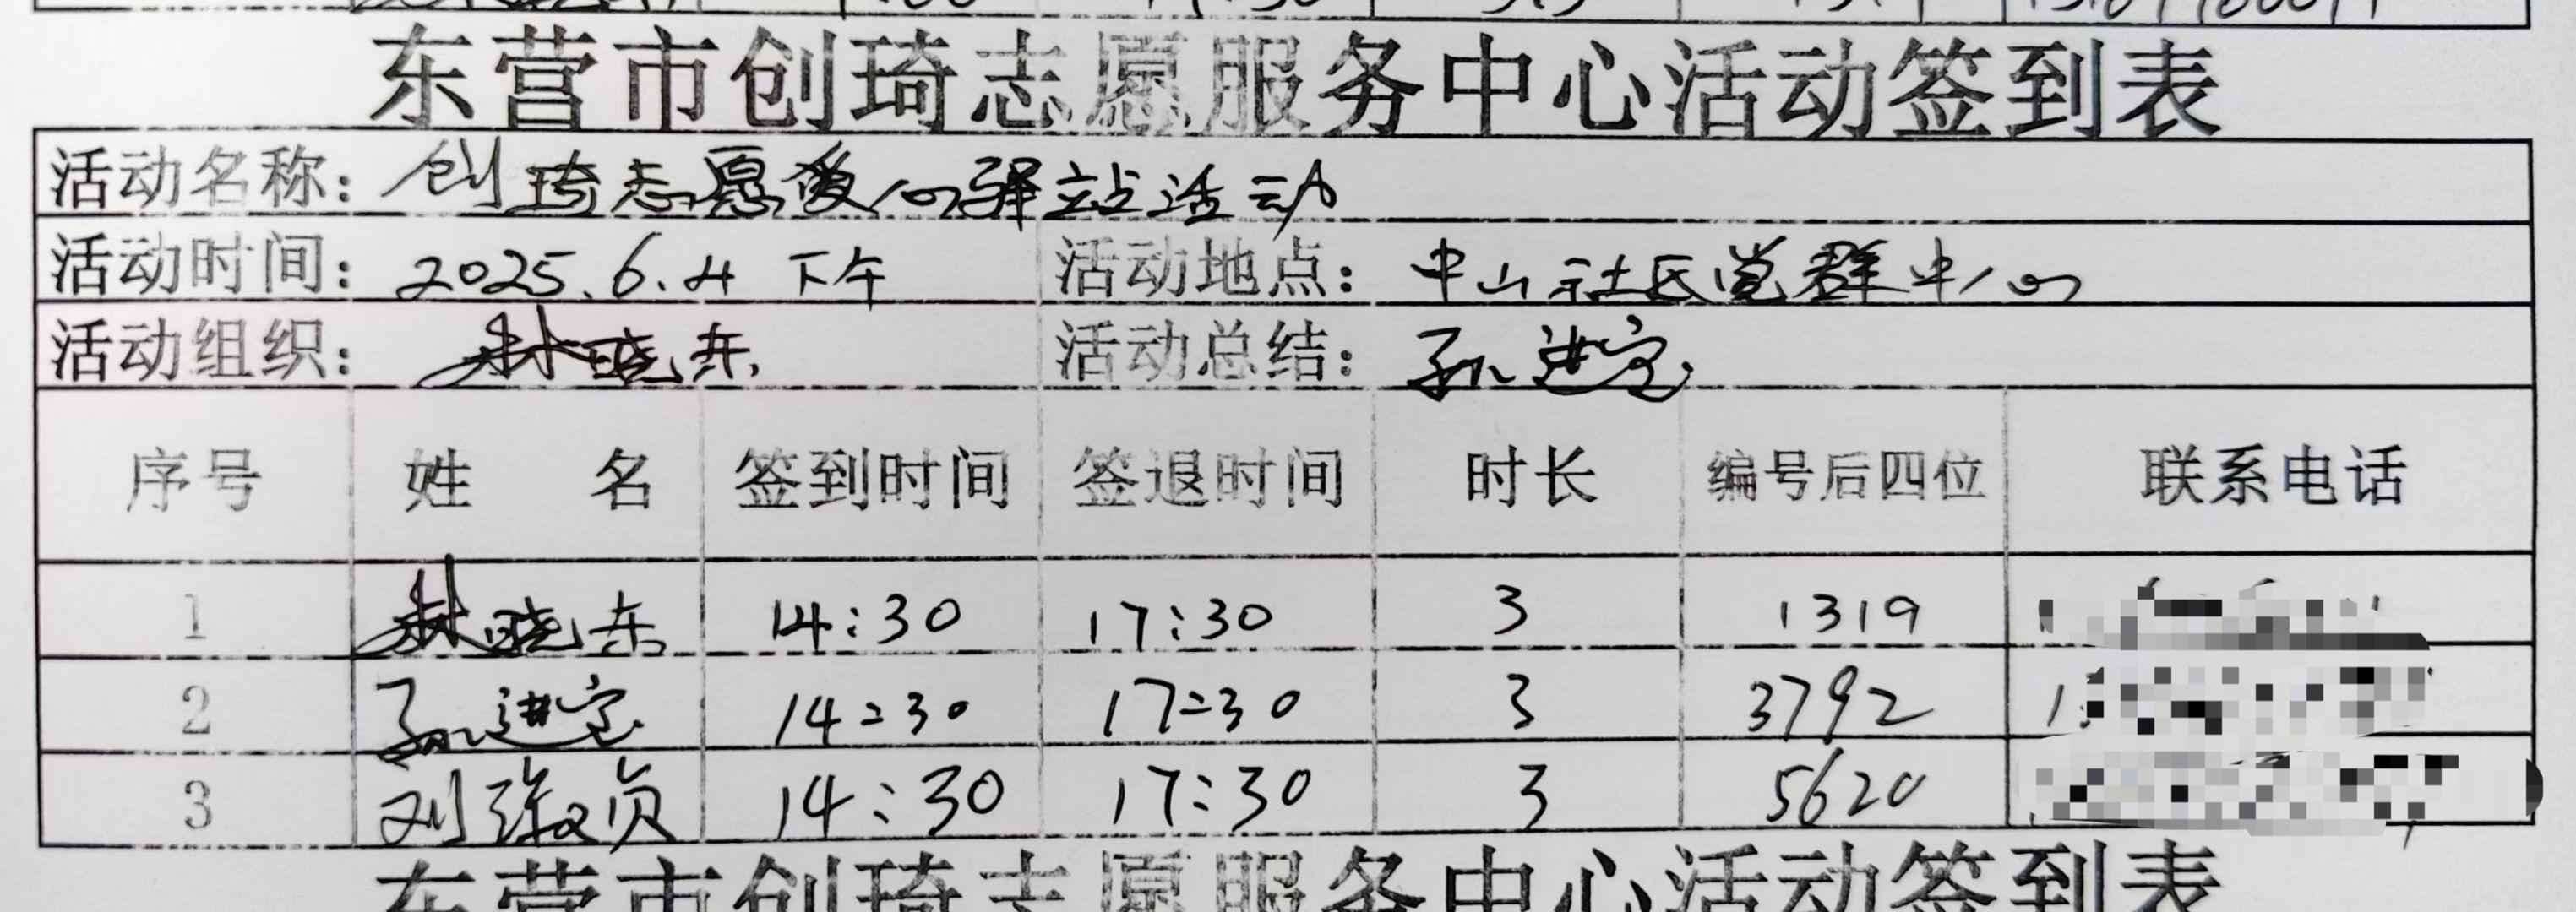 东营市创琦志愿服务中心活动签到表
活动名称：创琦志愿爱心驿站活动
活动时间：2025.6.4 下午 活动地点：中山社区党群中心
活动组织：林晓东 活动总结：孙进宝
序号 姓名 签到时间 签退时间 时长 编号后四位 联系电话
1 林晓东 14:30 17:30 3 1319
2 孙进宝 14:30 17:30 3 3792
3 刘 14:30 17:30 3 5620
东营市创琦志愿服务中心活动签到表